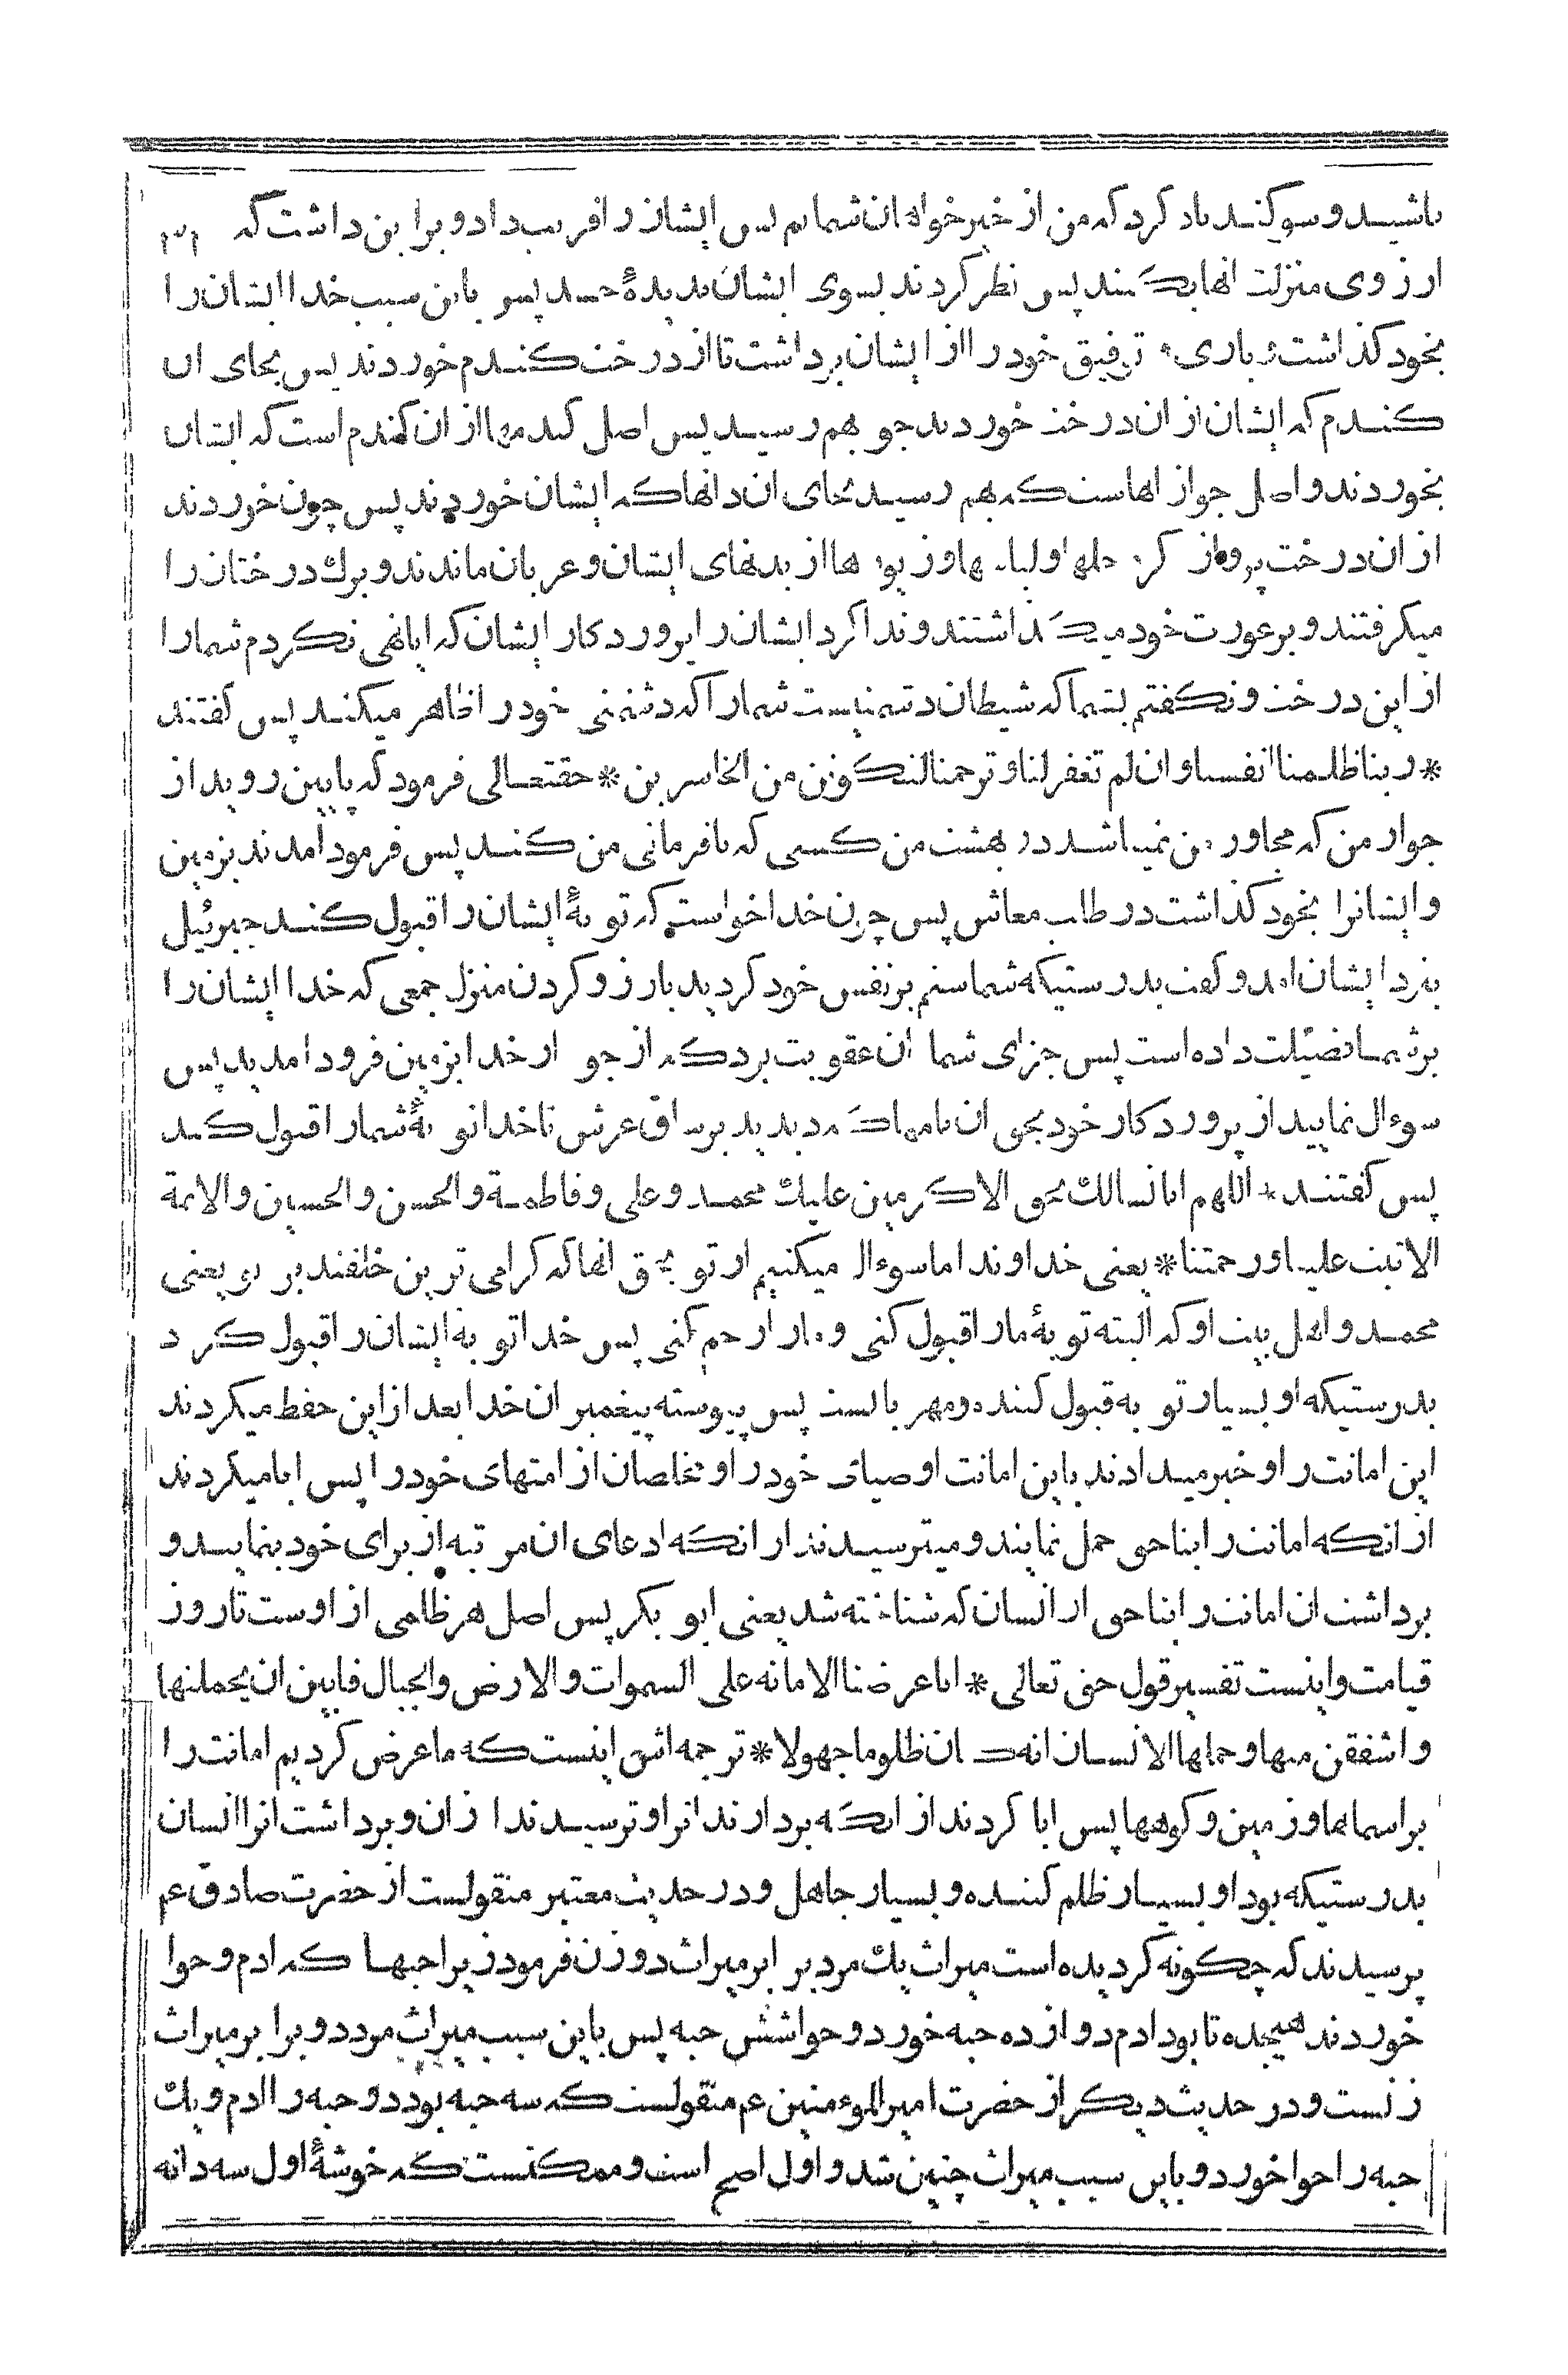 باشید و سوکند یاد کرد که من از خیر خواهان شمایم پس ایشان را فریب داد و بر این داشت که
ارزوی منزلت انها بکنند پس نظر کردند بسوی ایشان بدیدهٔ حسد پس باین سبب خدا ایشان را
بخود کذاشت و یاری و توفیق خود را از ایشان برداشت تا از درخت کندم خوردند پس بجای ان
کندم که ایشان از ان درخت خوردند جو بهم رسید پس اصل کندمها از ان کندم است که ایشان
بخوردند و اصل جو از انهاست که بهم رسید بجای ان دانها که ایشان خوردند پس چون خوردند
از ان درخت پرواز کرد حلها و لباسها و زیورها از بدنهای ایشان و عریان ماندند و برك درختان را
میکرفتند و بر عورت خود میکذاشتند و ندا کرد ایشان را پروردکار ایشان که ایا نهی نکردم شما را
از این درخت و نکفتم بشما که شیطان دشمنیست شما را که دشمنی خود را ظاهر میکند پس کفتند
* ربنا ظلمنا انفسنا و ان لم تغفر لنا و ترحمنا لنکونن من الخاسرین * حقتعالی فرمود که پایین روید از
جوار من که مجاور من نمیباشد در بهشت من کسی که نافرمانی من کند پس فرود امدند بزمین
و ایشانرا بخود کذاشت در طلب معاش پس چون خدا خواست که توبهٔ ایشان را قبول کند جبرئیل
بنزد ایشان امد و کفت بدرستیکه شما ستم بر نفس خود کردید بارزو کردن منزل جمعی که خدا ایشان را
بر شما فضیلت داده است پس جزای شما ان عقوبت برد که از جوار خدا بزمین فرود امدید پس
سوءال نمایید از پروردکار خود بحق ان نامها که دیدید بر ساق عرش تا خدا توبهٔ شما را قبول کند
پس کفتند * اللهم انا نسالك بحق الاکرمین علیك محمد و علی و فاطمة و الحسن و الحسین و الائمة
الا تبت علینا و رحمتنا * یعنی خداوندا ما سوءال میکنیم از تو بحق انها که کرامی ترین خلقند بر تو یعنی
محمد و اهل بیت او که البته توبهٔ ما را قبول کنی و ما را رحم کنی پس خدا توبه ایشان را قبول کرد
بدرستیکه او بسیار توبه قبول کننده و مهربانست پس پیوسته پیغمبران خدا بعد از این حفظ میکردند
این امانت را و خبر میدادند باین امانت اوصیای خود را و مخلصان از امتهای خود را پس ابا میکردند
از انکه امانت را بناحق حمل نمایند و میترسیدند از انکه ادعای ان مرتبه از برای خود بنمایند و
برداشت ان امانت را بناحق ان انسان که شناخته شد یعنی ابو بکر پس اصل هر ظلمی از اوست تا روز
قیامت و اینست تفسیر قول حق تعالی * انا عرضنا الامانه علی السموات و الارض و الجبال فابین ان یحملنها
و اشفقن منها و حملها الانسان انه کان ظلوما جهولا * ترجمه اش اینست که ما عرض کردیم امانت را
بر اسمانها و زمین و کوهها پس ابا کردند از انکه بردارند انرا و ترسیدند از ان و برداشت انرا انسان
بدرستیکه بود او بسیار ظلم کننده و بسیار جاهل و در حدیث معتبر منقولست از حضرت صادق عم
پرسیدند که چکونه کردیده است میراث یك مرد برابر میراث دو زن فرمود زیرا حبها که ادم و حوا
خوردند هیجده تا بود ادم دوازده حبه خورد و حوا شش حبه پس باین سبب میراث مرد دو برابر میراث
زنست و در حدیث دیکر از حضرت امیر الموءمنین عم منقولست که سه حبه بود دو حبه را ادم و یك
حبه را حوا خورد و باین سبب میراث چنین شد و اول اصح است و ممکنست که خوشهٔ اول سه دانه